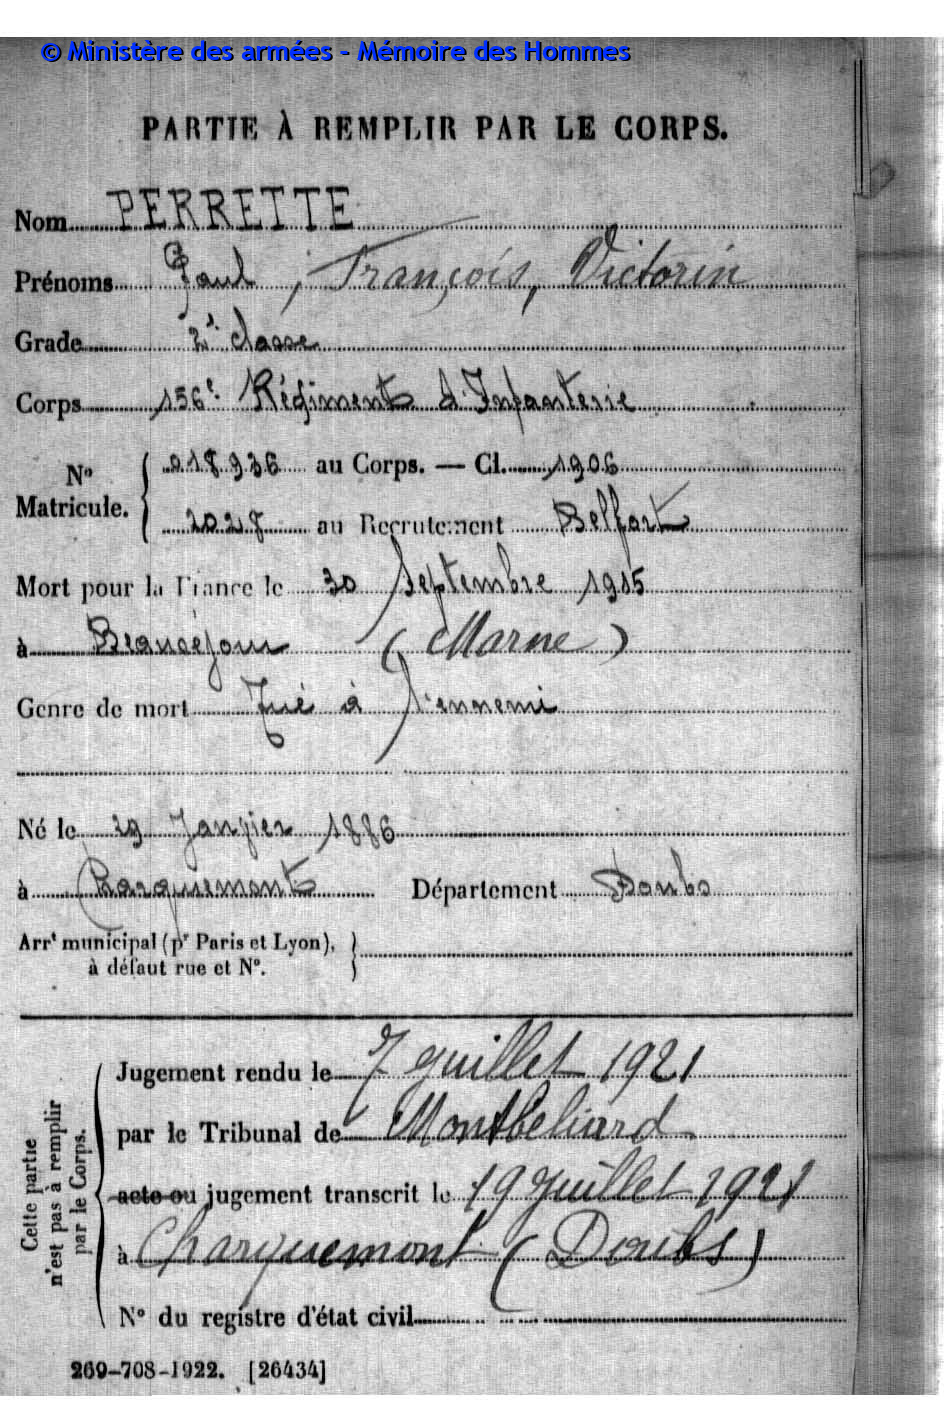 © Ministère des armées - Mémoire des Hommes
PARTIE À REMPLIR PAR LE CORPS.
Nom PERRETTE
Prénoms Paul, François, Victorin
Grade 2e classe
Corps 156e Régiment d'Infanterie
No Matricule. 018936 au Corps. — Cl. 1906
2028 au Recrutement Belfort
Mort pour la France le 30 Septembre 1915
à Beauséjour (Marne)
Genre de mort Tué à l'ennemi
Né le 29 Janvier 1886
à Charquemont Département Doubs
Arrt municipal (pr Paris et Lyon),
à défaut rue et No.
Cette partie
n'est pas à remplir
par le Corps.
Jugement rendu le 7 juillet 1921
par le Tribunal de Montbéliard
acte ou jugement transcrit le 19 juillet 1921
à Charquemont (Doubs)
No du registre d'état civil
269-708-1922. [26434]